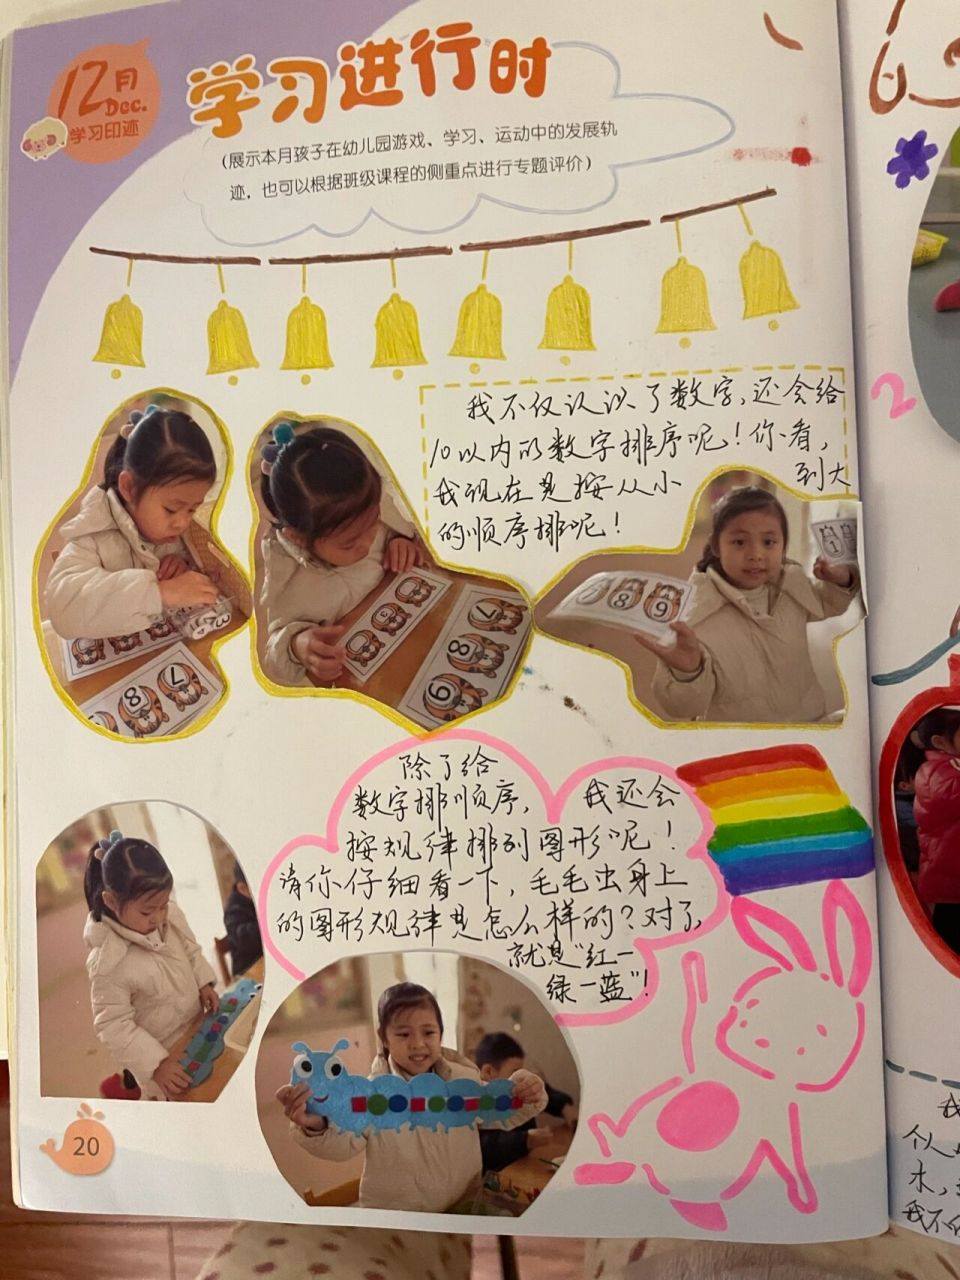 12月
Dec.
学习印迹
学习进行时
(展示本月孩子在幼儿园游戏、学习、运动中的发展轨
迹，也可以根据班级课程的侧重点进行专题评价)
我不仅认识了数字,还会给
10以内的数字排序呢!你看,
我现在是按从小 到大
的顺序排呢!
7 8 9
1
7
8
9
8 7
除了给
数字排顺序, 我还会
按规律排列图形呢!
请你仔细看一下,毛毛虫身上
的图形规律是怎么样的?对了,
就是"红一
绿一蓝"!
20
2
我
个人
木,
我不仅